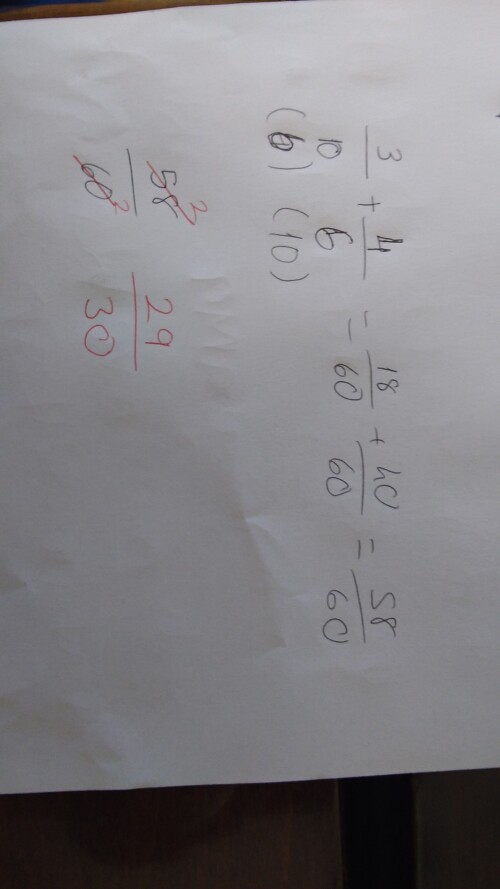 3/10 + 4/6 = 18/60 + 40/60 = 58/60
(6) (10)
58²/60² 29/30